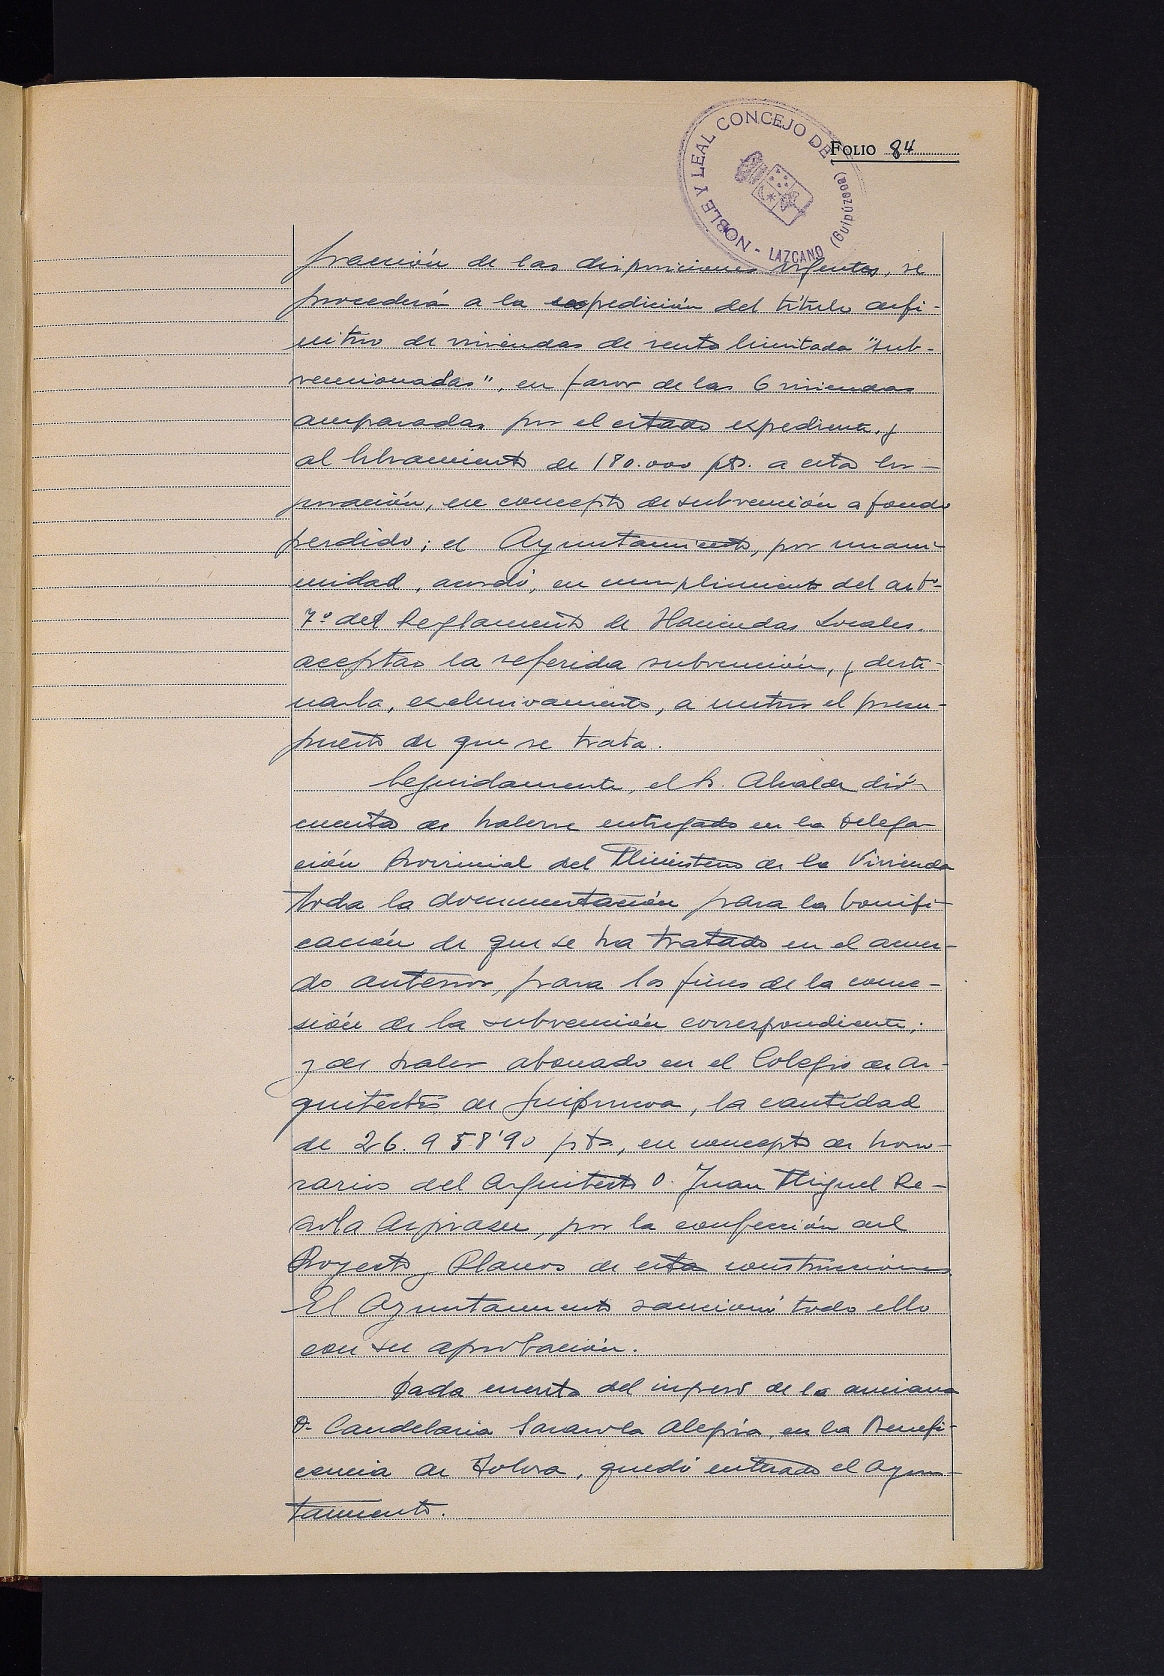 NOBLE Y LEAL CONCEJO DE
LAZCANO (Guipúzcoa)
FOLIO 84
fracción de las disposiciones vigentes, se
procederá a la expedición del título defi-
nitivo de viviendas de renta limitada "sub-
vencionadas", en favor de las 6 viviendas
amparadas por el citado expediente, y
al libramiento de 180.000 pts. a esta Cor-
poración, en concepto de subvención a fondo
perdido; el Ayuntamiento, por unani-
midad, acordó, en cumplimiento del artº
7º del Reglamento de Haciendas Locales,
aceptar la referida subvención, y desti-
narla, exclusivamente, a nutrir el presu-
puesto de que se trata.
Seguidamente, el Sr. Alcalde dió
cuenta de haberse entregado en la Delega-
ción Provincial del Ministerio de la Vivienda
toda la documentación para la bonifi-
cación de que se ha tratado en el acuer-
do anterior, para los fines de la conce-
sión de la subvención correspondiente;
y de haber abonado en el Colegio de Ar-
quitectos de Guipúzcoa, la cantidad
de 26.958'90 pts, en concepto de hono-
rarios del Arquitecto D. Juan Miguel Re-
sola Azpiazu, por la confección del
Proyecto y Planos de esta construcciones.
El Ayuntamiento sancionó todo ello
con su aprobación.
Dada cuenta del ingreso de la anciana
Dª Candelaria Sarasola Alegría, en la Benefi-
cencia de Tolosa, quedó enterado el Ayun-
tamiento.